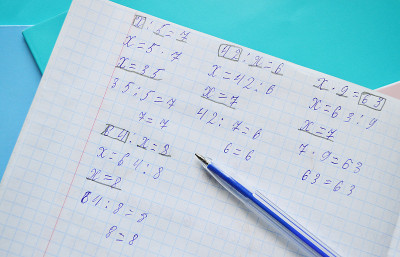 x : 5 = 7
x = 5 · 7
x = 35
35 : 5 = 7
7 = 7
64 : x = 8
x = 64 : 8
x = 8
64 : 8 = 8
8 = 8
42 : x = 6
x = 42 : 6
x = 7
42 : 7 = 6
6 = 6
x · 9 = 63
x = 63 : 9
x = 7
7 · 9 = 63
63 = 63